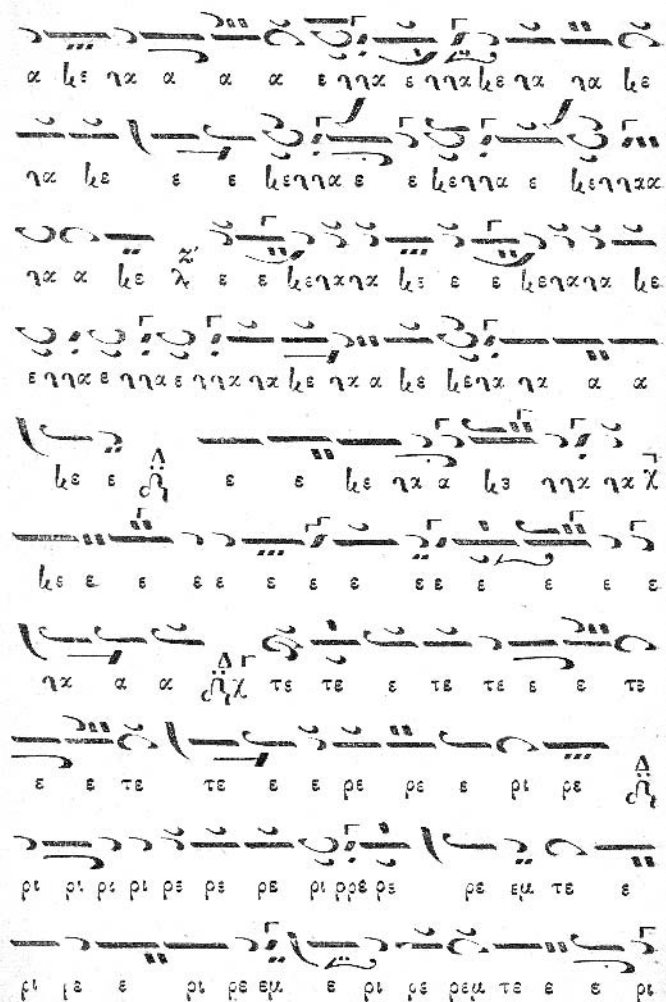 α νε να α α α ε ννα ε ννα νε να να νε
να νε ε ε νε ννα ε ε νε ννα ε νε ννα α
να α νε ε ε νε να να νε ε ε νε να να νε
ε ννα ε ννα ε ννα να νε να α νε νε να να α α
νε ε Δ ε ε νε να α νε ννα να χ
νε ε ε ε ε ε ε ε ε ε ε ε ε ε
να α α Δ χ τε τε ε τε τε ε ε τε
ε ε τε τε ε ε ρε ρε ε ρι ρε Δ
ρι ρι ρι ρι ρε ρε ρε ρι ρρε ρε ρε εμ τε ε
ρι ρε ε ρι ρε εμ ε ρι ρε ρεμ τε ε ε ρι